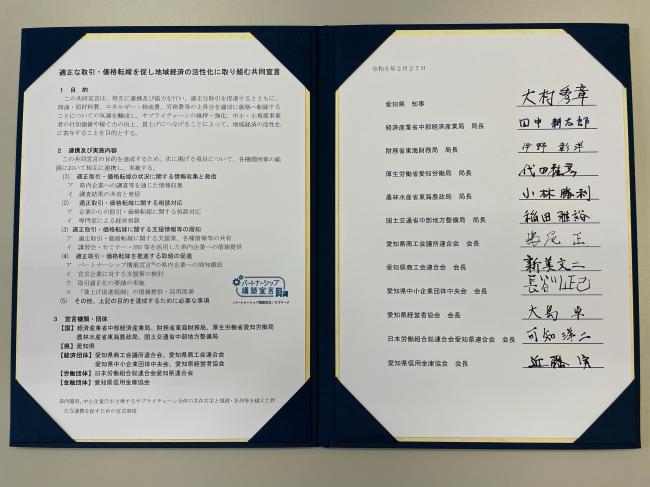 適正な取引・価格転嫁を促し地域経済の活性化に取り組む共同宣言
1 目 的
この共同宣言は、相互に連携及び協力を行い、適正な取引を促進するとともに、
原油・原材料費、エネルギー・物流費、労務費等の上昇分を適切に価格へ転嫁する
ことについての気運を醸成し、サプライチェーンの維持・強化、中小・小規模事業
者の付加価値や稼ぐ力の向上、賃上げにつなげることによって、地域経済の活性化
に寄与することを目的とする。
2 連携及び実施内容
この共同宣言の目的を達成するため、次に掲げる項目について、各機関所掌の範
囲において相互に連携し、実施する。
(1) 適正取引・価格転嫁の状況に関する情報収集と発信
ア 県内企業への調査等を通じた情報収集
イ 調査結果の共有と発信
(2) 適正取引・価格転嫁に関する相談対応
ア 企業からの取引・価格転嫁に関する相談対応
イ 専門家による経営相談
(3) 適正取引・価格転嫁に関する支援情報等の周知
ア 適正取引・価格転嫁に関する支援策、各種情報等の共有
イ 講習会・セミナー・SNS等を活用した県内企業への情報提供
(4) 適正取引・価格転嫁を推進する取組の促進
ア パートナーシップ構築宣言※の県内企業への周知徹底
イ 宣言企業に対する支援策の検討
ウ 取引適正化の要請の実施
エ 「賃上げ促進税制」の情報提供・活用促進
(5) その他、上記の目的を達成するために必要な事項
パートナーシップ
構築宣言
「パートナーシップ構築宣言」ロゴマーク
3 宣言機関・団体
【国】経済産業省中部経済産業局、財務省東海財務局、厚生労働省愛知労働局
農林水産省東海農政局、国土交通省中部地方整備局
【県】愛知県
【経済団体】愛知県商工会議所連合会、愛知県商工会連合会
愛知県中小企業団体中央会、愛知県経営者協会
【労働団体】日本労働組合総連合会愛知県連合会
【金融団体】愛知県信用金庫協会
※内閣府、中小企業庁が主導するサプライチェーン全体の共存共栄と規模・系列等を越えた新
たな連携を促すための宣言制度
令和5年2月27日
愛知県 知事 大村秀章
経済産業省中部経済産業局 局長 田中耕太郎
財務省東海財務局 局長 伊野彰洋
厚生労働省愛知労働局 局長 代田雅彦
農林水産省東海農政局 局長 小林勝利
国土交通省中部地方整備局 局長 稲田雅裕
愛知県商工会議所連合会 会長 嶋尾正
愛知県商工会連合会 会長 新美文二
愛知県中小企業団体中央会 会長 長谷川正己
愛知県経営者協会 会長 大島卓
日本労働組合総連合会愛知県連合会 会長 可知洋二
愛知県信用金庫協会 会長 近藤実